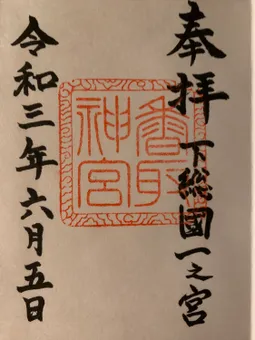 奉拝 下総國一之宮
香取神宮
令和三年六月五日